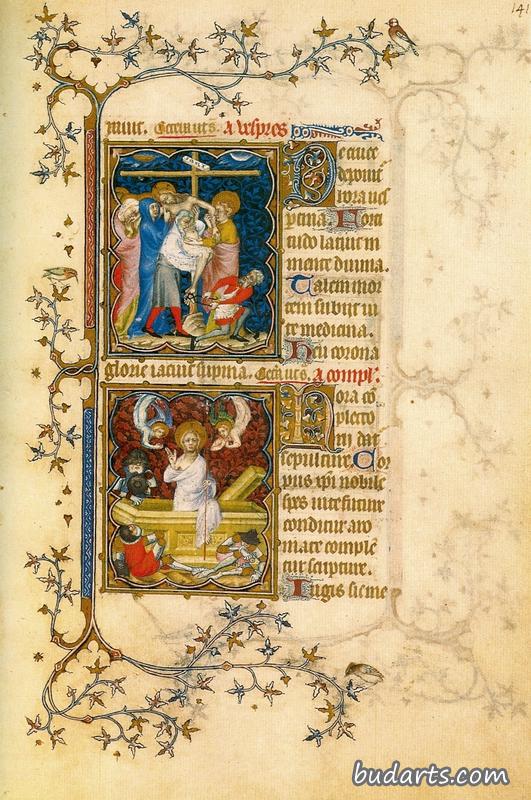 141
A vespres
De cruce
deponit̄
hora ues
ptina. Forti
tudo latuit in
mente diuina.
Talem mor
tem subijt ui
te medicina.
Heu corona
glorie iacuit supina. A compl'.
Hora cō
pletto
rij dat
sepulture. Cor
pus xpi nobile
spes uite future
conditur aro
mate comple
tur scripture.
Iugis sit me
budarts.com